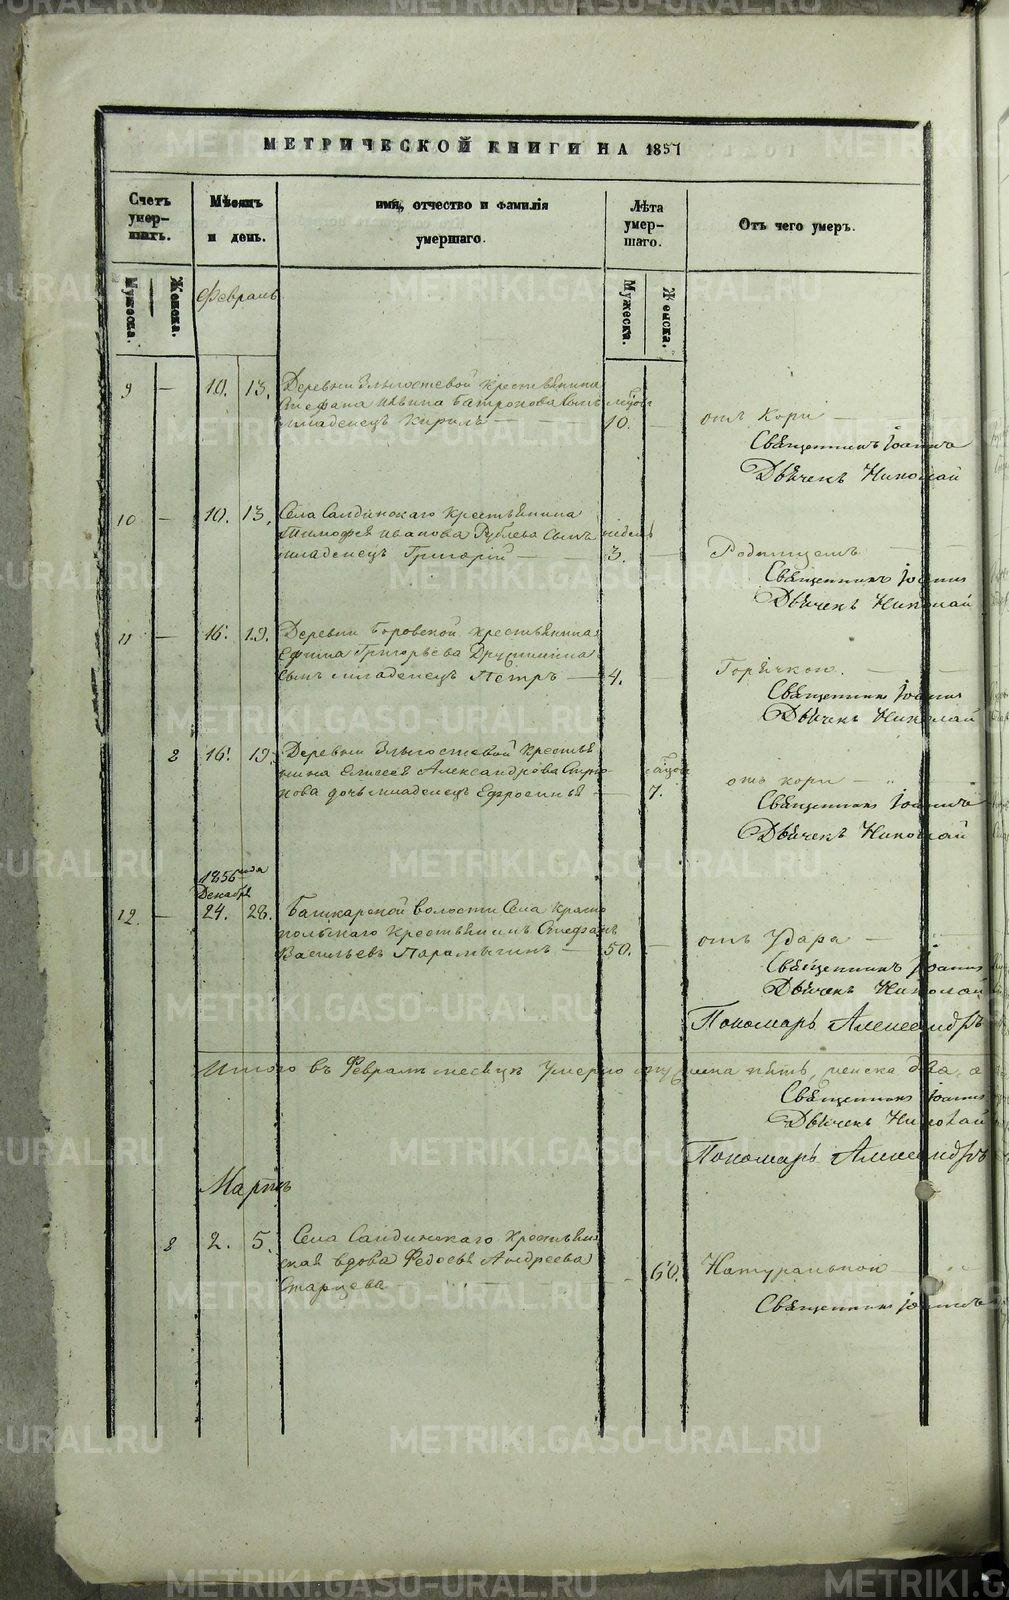 МЕТРИЧЕСКОЙ КНИГИ НА 1857
Счетъ умер- шихъ.
Мѣсяцъ и день.
имя, отчество и фамилія умершаго.
Лѣта умер- шаго.
Отъ чего умеръ.
Мужеска.
Женска.
Февраль
Мужеска.
Женска.
9 — 10. 13. Деревни крестьянина
Стефана Ильина сынъ
младенецъ Кирилъ — 10. отъ Кори —
Священникъ Іоаннъ
Дьячекъ Николай
10 — 10. 13. Села Салдинскаго крестьянина
Тимофея Иванова Рублева сынъ недель
младенецъ Григорій — 3. — Родимцемъ —
Священникъ Іоаннъ
Дьячекъ Николай
11 — 16. 19. Деревни Боровской крестьянина
Ефима Григорьева
сынъ младенецъ Петръ — 4. — Горячкою. —
Священникъ Іоаннъ
Дьячекъ Николай
2 16. 19. Деревни крестья
нина Елисея Александрова
нова дочь младенецъ Ефросинья — 7. отъ кори —
Священникъ Іоаннъ
Дьячекъ Николай
1856 года
Декабря
12. — 24. 28. Башкарской волости Села Красно
польскаго крестьянинъ Стефанъ
Васильевъ — 50. — отъ Удара —
Священникъ Іоаннъ
Дьячекъ Николай
Пономарь Александръ
Итого въ Февралѣ месяцѣ умерло мужеска пять, женска два, а
Священникъ Іоаннъ
Дьячекъ Николай
Пономарь Александръ
Мартъ
2. 5. Села Салдинскаго крестьян
ская вдова Федосья Андреева
Старцева — 60. Натуральною
Священникъ Іоаннъ
METRIKI.GASO-URAL.RU